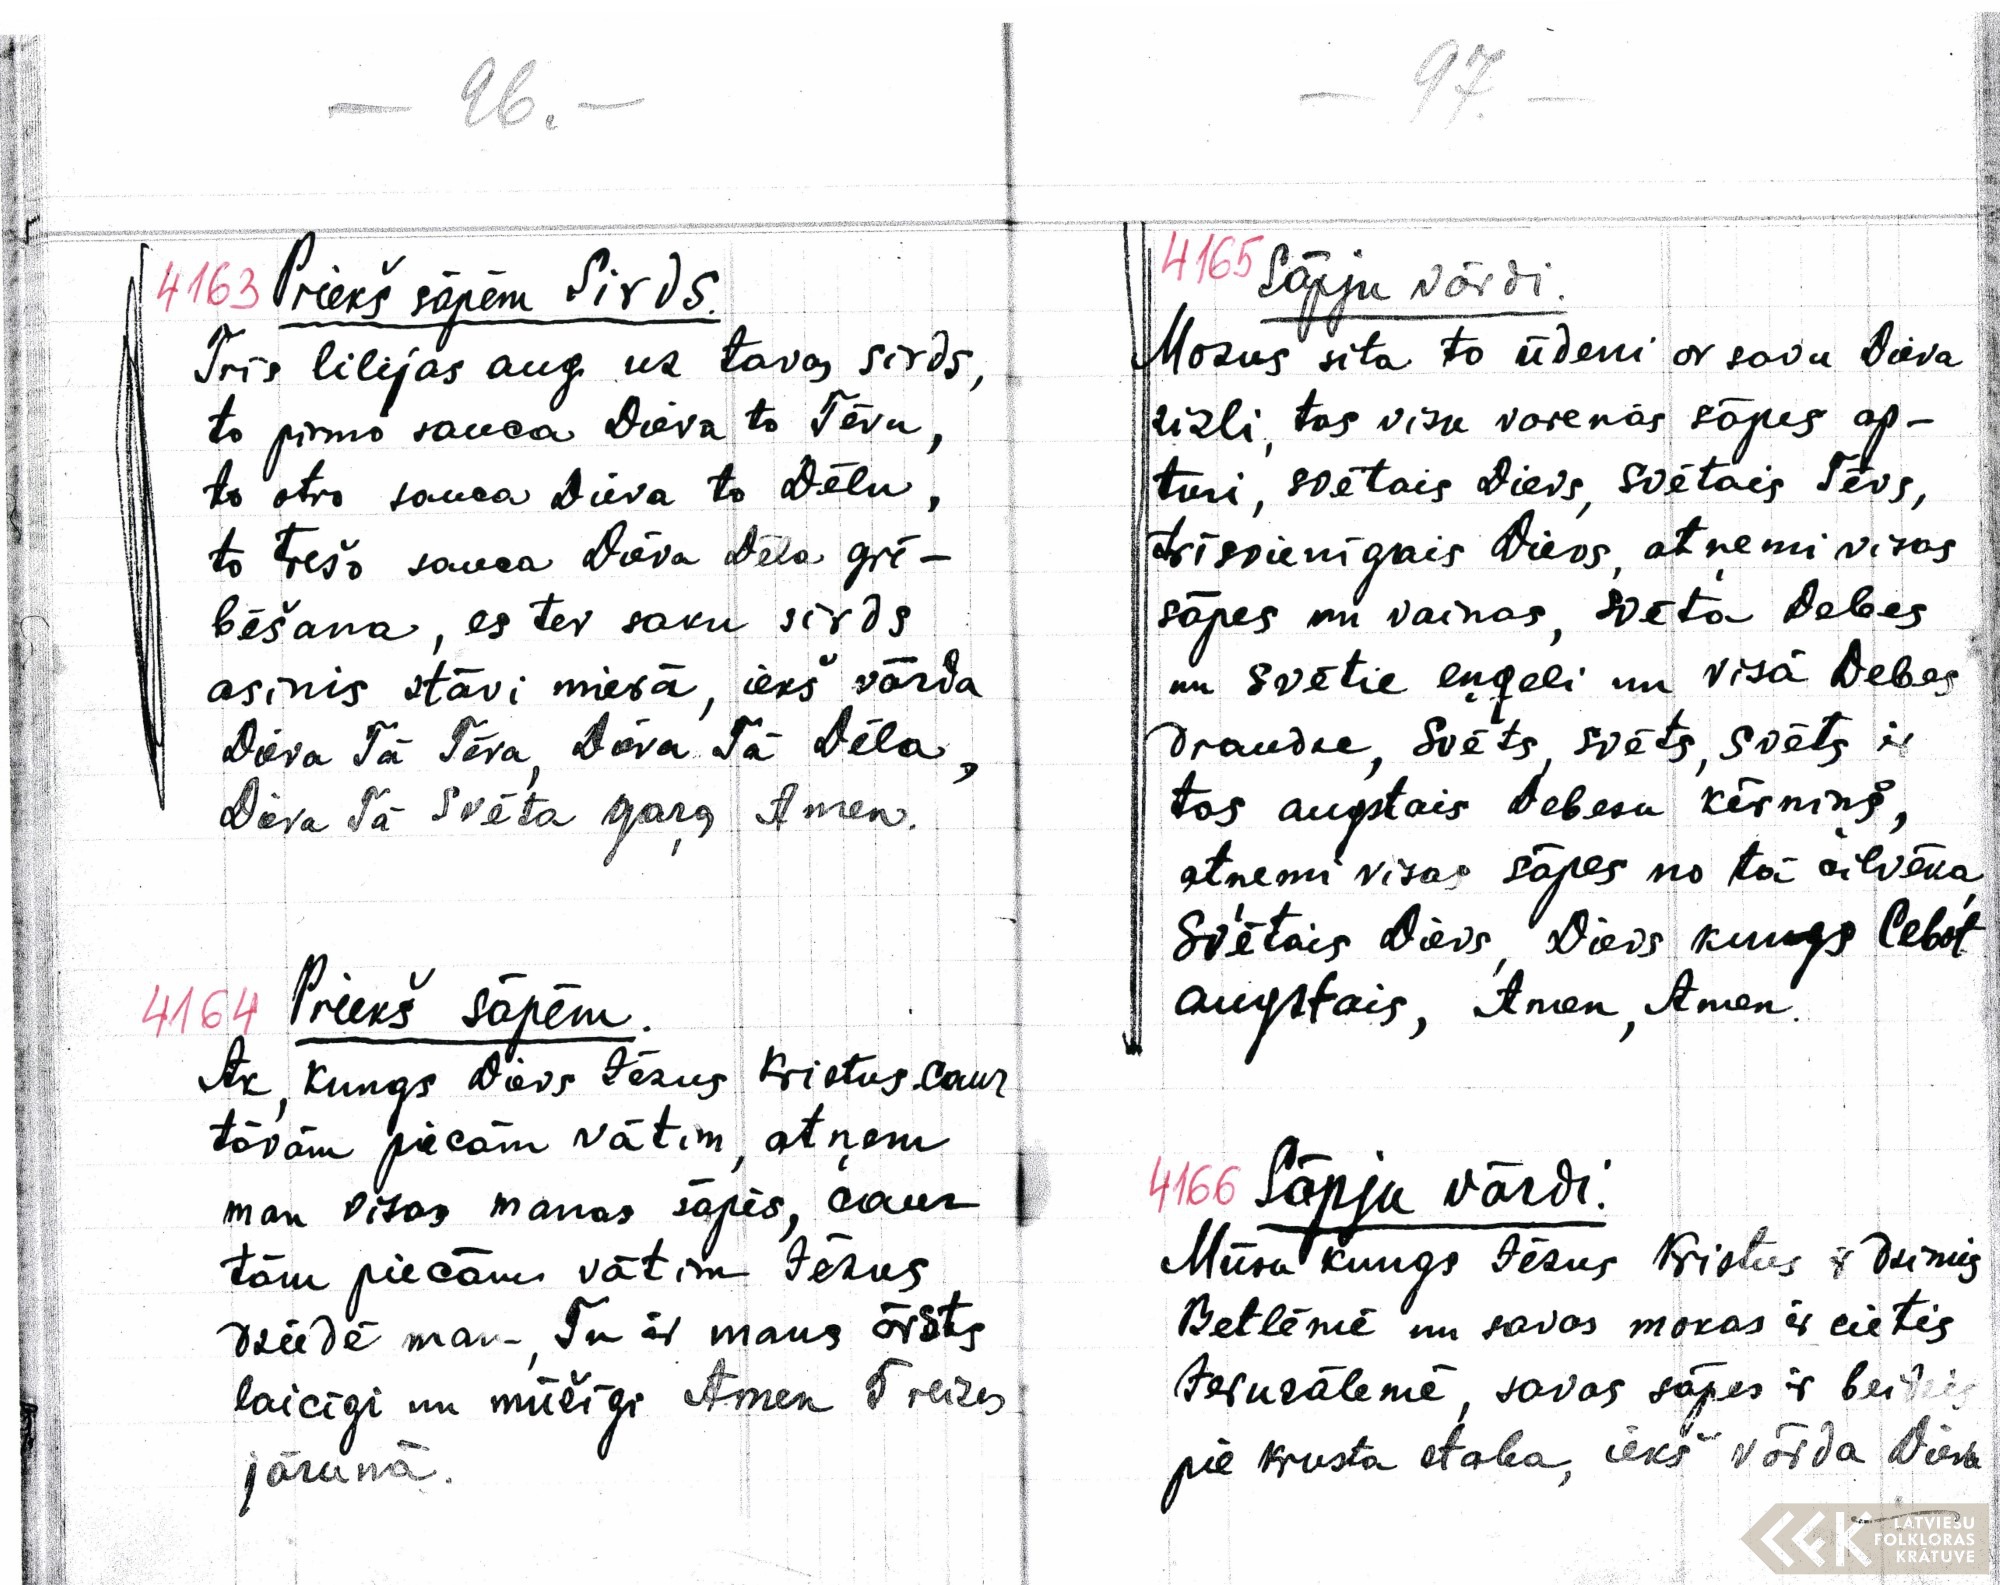 — 96. —
4163 Priekš sāpēm Sirds.
Trīs lilijas aug uz tavas sirds,
to pirmo sauca Dieva to Tēvu,
to otro sauca Dieva to Dēlu,
to trešo sauca Dieva Dēla gri-
bēšana, es tev saku sirds
asinis stāvi mierā, iekš vārda
Dieva Tā Tēva, Dieva Tā Dēla,
Dieva Tā Svēta gara Amen.
4164 Priekš sāpēm.
Ak, kungs Dievs Jēzus Kristus caur
tāvām piecām vātim, atņem
man visas manas sāpēs, caur
tām piecām vātim Jēzus
dziedē man, Tu ir mans ārsts
laicīgi un mūžīgi Amen Treizes
jārunā.
— 97. —
4165 Sāpju vārdi.
Mozus sita to ūdeni ar savu Dieva
zizli, tas visu varenās sāpes ap-
turi, svētais Dievs, Svētais Tēvs,
trīsvienīgais Dievs, atņemi visas
sāpes un vainas, svēta Debes
un svētie eņģeli un visā Debes
draudze, Svēts, svēts, svēts ir
tas augstais Debesu ķērniņš,
atņemi visas sāpes no tā cilvēka,
Svētais Dievs, Dievs kungs Cebot
augstais, Amen, Amen.
4166 Sāpju vārdi.
Mūsu kungs Jēzus Kristus ir dzimis
Betlēmē un savas mokas ir cietis
Jeruzālemē, savas sāpes ir beidzis
pie krusta staba, iekš vārda Dieva
LATVIEŠU
FOLKLORAS
KRĀTUVE